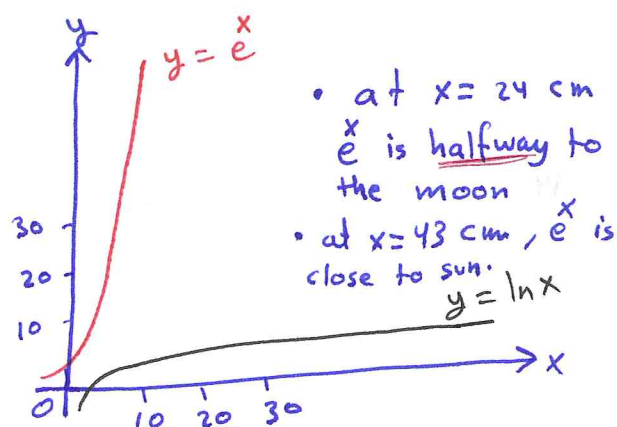 y
y = e^x
• at x = 24 cm
e^x is halfway to
the moon
• at x = 43 cm, e^x is
close to sun.
y = ln x
30
20
10
0
10 20 30
x